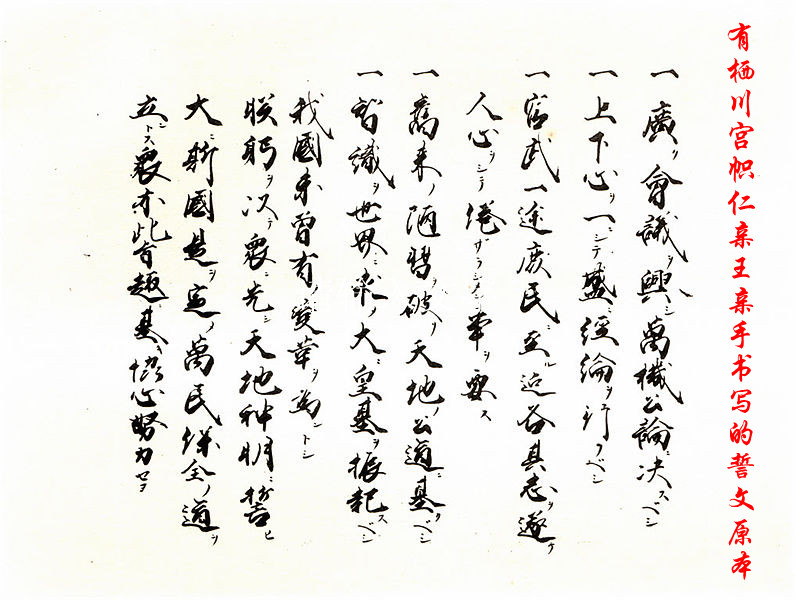 有栖川宫帜仁亲王亲手书写的誓文原本
一 廣ク會議ヲ興シ萬機公論ニ决スベシ
一 上下心ヲ一ニシテ盛ニ經綸ヲ行フベシ
一 官武一途庶民ニ至ル迄各其志ヲ遂ケ
人心ヲシテ倦マザラシメン事ヲ要ス
一 舊来ノ陋習ヲ破リ天地ノ公道ニ基クベシ
一 智識ヲ世界ニ求メ大ニ皇基ヲ振起スベシ
我國未曾有ノ變革ヲ為ントシ
朕躬ヲ以テ衆ニ先シ天地神明ニ誓ヒ
大ニ斯國是ヲ定メ萬民保全ノ道ヲ
立ントス衆亦此旨趣ニ基キ協心努力セヨ